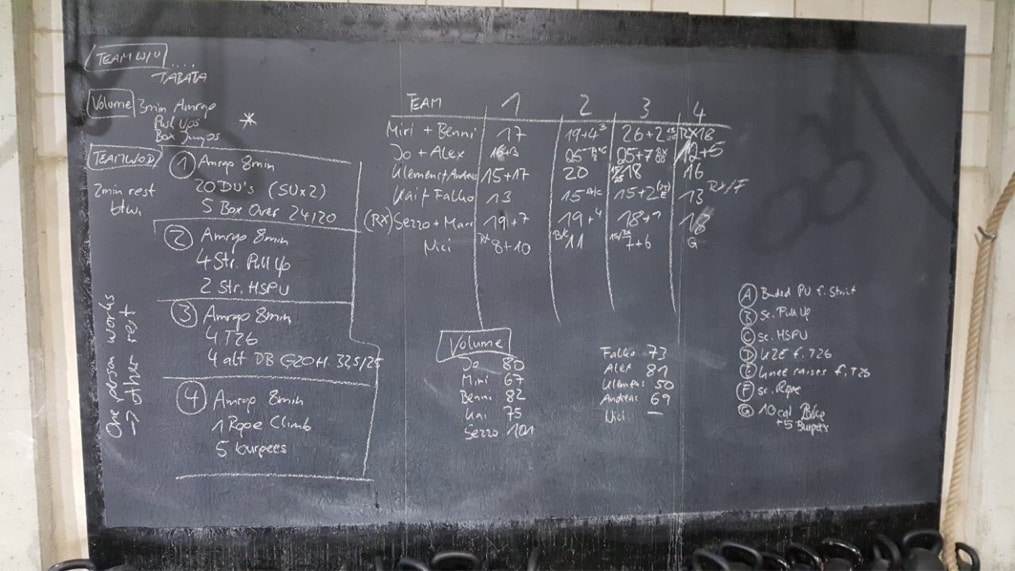 TEAM W/U ....
TABATA
Volume 3min Amrap
Pull Ups
Box jumps
*
TEAMWOD
2min rest
btw.
1 Amrap 8min
20 DU's (SUx2)
5 Box Over 24/20
2 Amrap 8min
4 Str. Pull Up
2 Str. HSPU
3 Amrap 8min
4 T2B
4 alt DB G2OH 32,5/25
4 Amrap 8min
1 Rope Climb
5 burpees
One person works
→ other rest
TEAM 1 2 3 4
Miri + Benni 17 19+4 26+2 RX 18
Jo + Alex 25 25+7 12+5
Klemens + Andreas 15+17 20 18 16
Kai + Falko 13 15 A/C 15+2 13 RX/F
(RX) Sezzo + Marc 19+7 19+4 18+1 18
Nici RX 8+10 B/C 11 7+6 G
Volume
Jo 80
Miri 67
Benni 82
Kai 75
Sezzo 101
Falko 73
Alex 81
Klemens 50
Andreas 69
Nici —
A Banded PU f. Strict
B Sc. Pull Up
C Sc. HSPU
D K2E f. T2B
E Knee raises f. T2B
F Sc. Rope
G 10 cal Bike
+5 Burpees